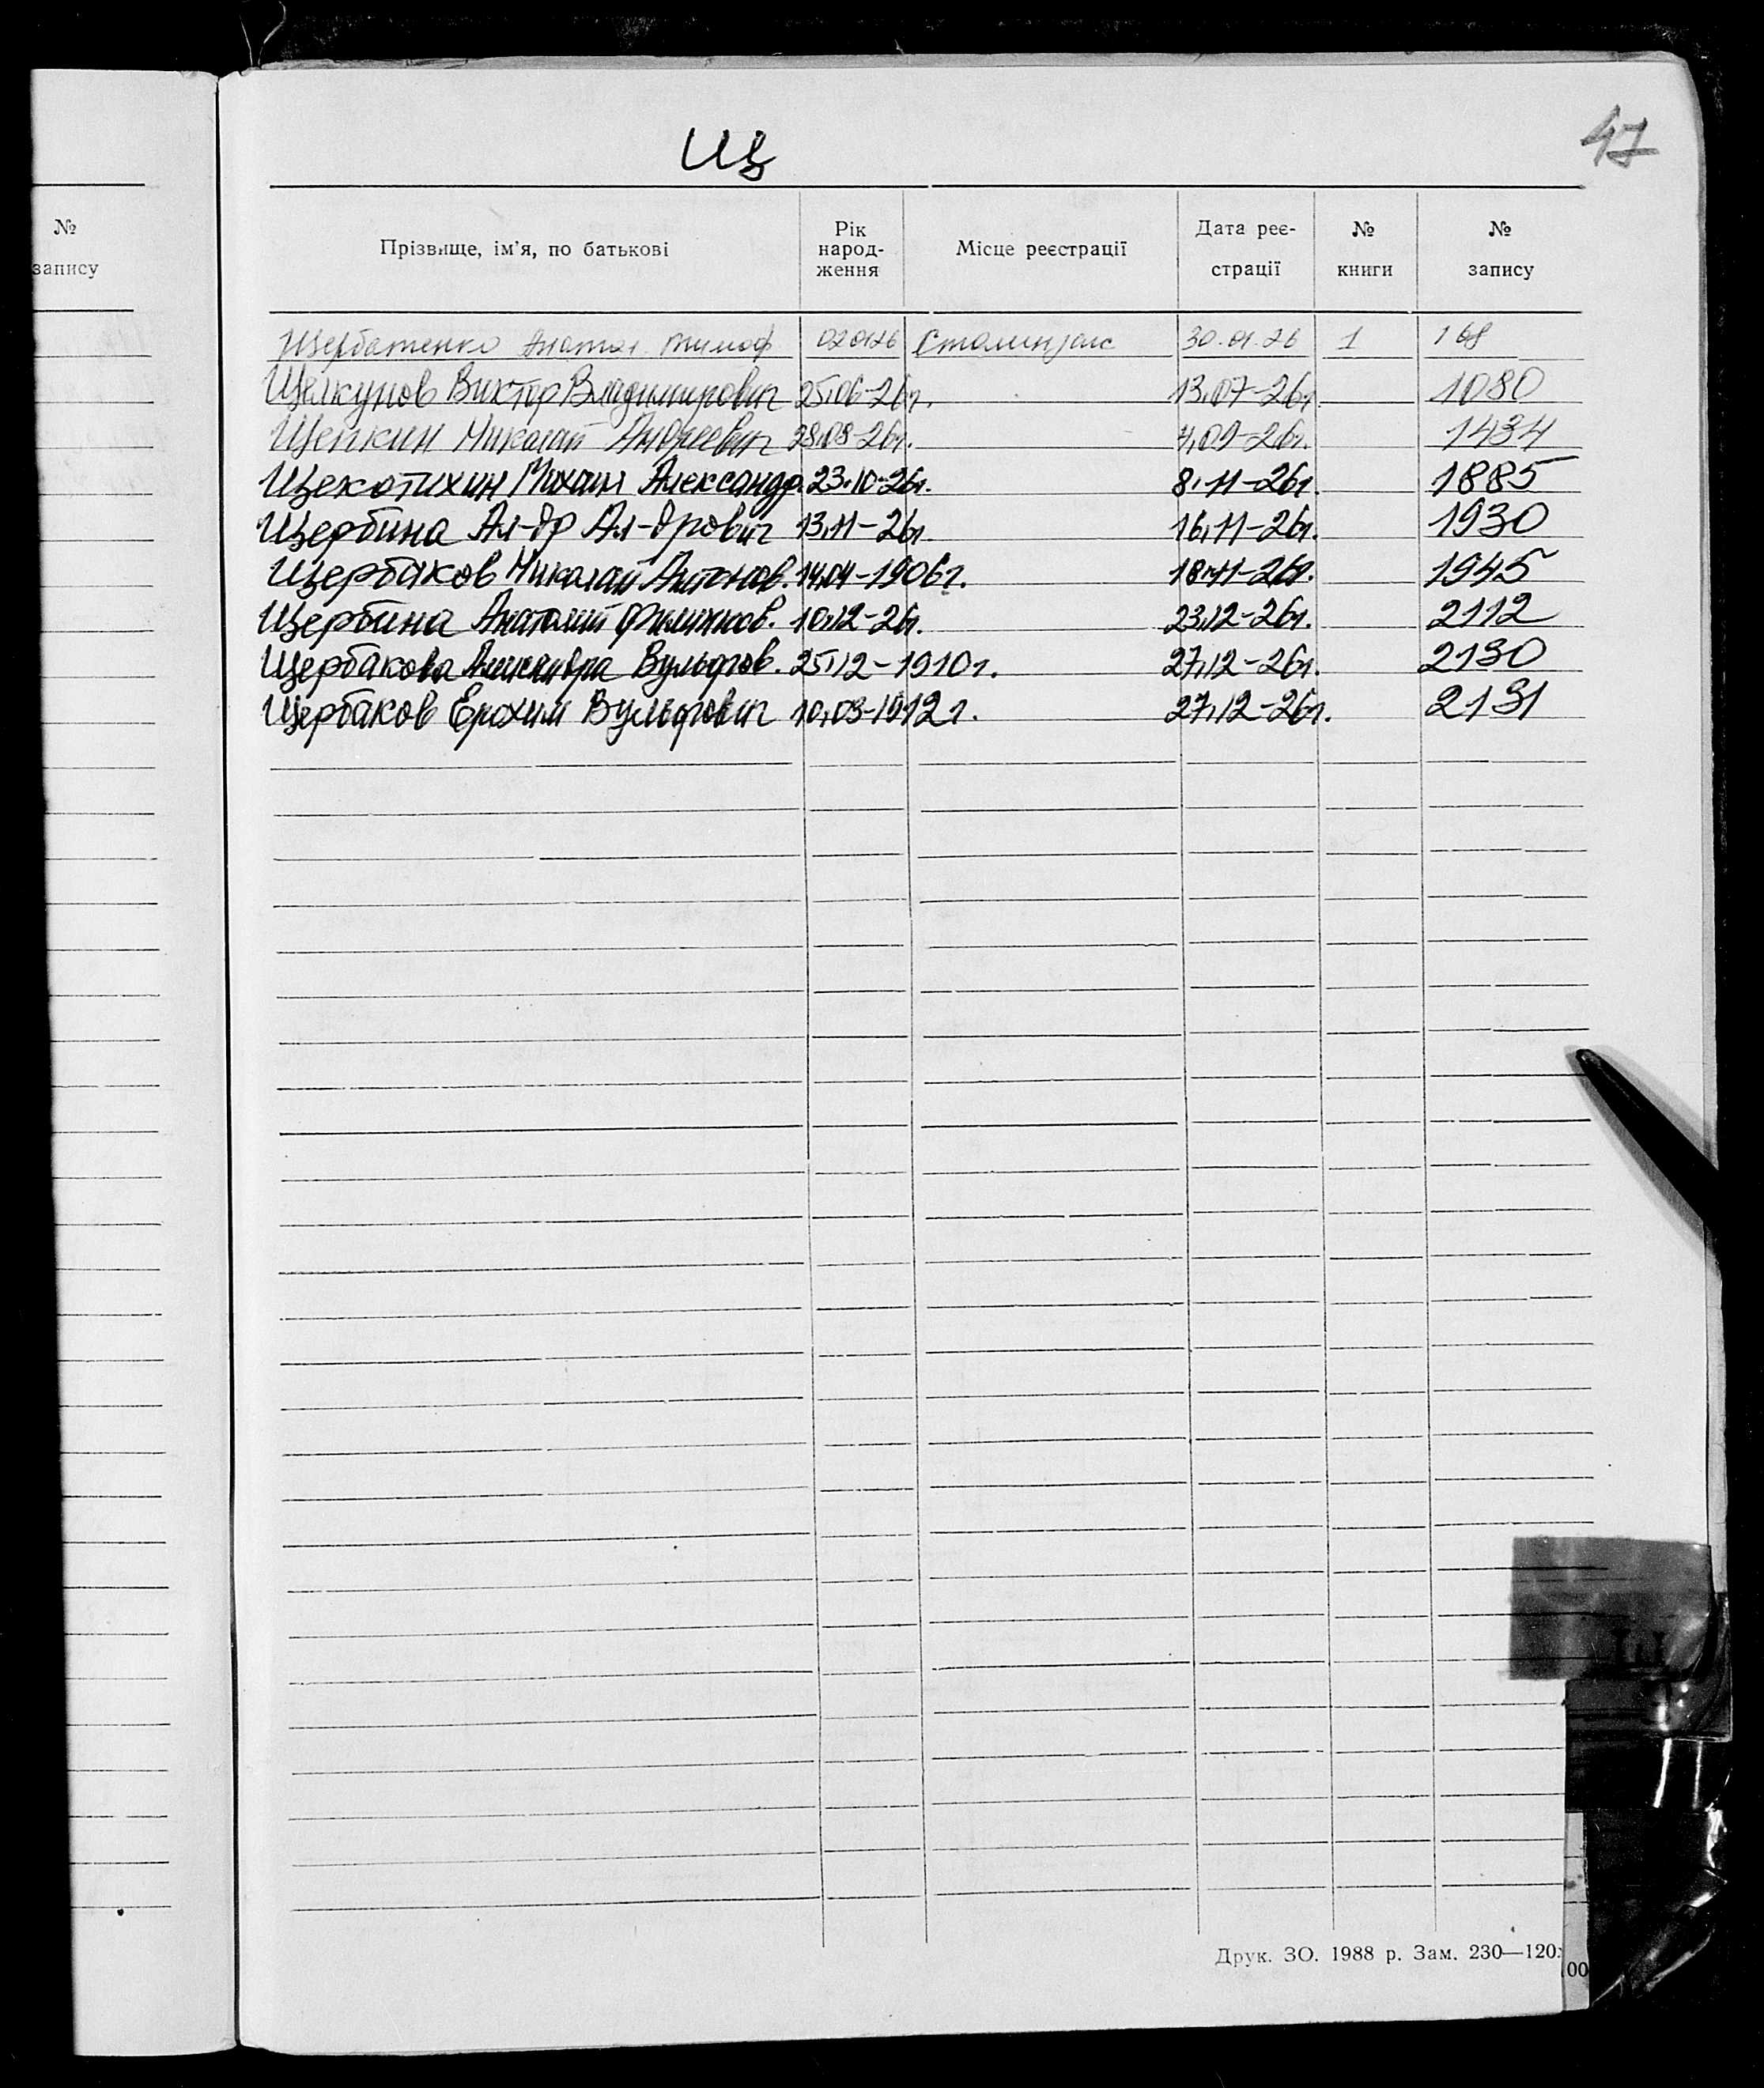 Щ
47
№
запису
Прізвище, ім'я, по батькові Рік народ-ження Місце реєстрації Дата реє-страції № книги № запису
Щербатенко Анатол. Тимоф 020126 Сталинзагс 30.01.26 1 168
Щелкунов Виктор Владимирович 25,06-26г. 13,07-26г. 1080
Щепкин Николай Андреевич 28,08-26г. 4,09-26г. 1434
Щекотихин Михаил Александр. 23.10-26г. 8.11-26г. 1885
Щербина Ал-др Ал-дрович 13,11-26г. 16,11-26г. 1930
Щербаков Николай Антонов. 14,04-1906г. 18,11-26г. 1945
Щербина Анатолий 10,12-26г. 23,12-26г. 2112
Щербакова Александра Вульфов. 25,12-1910г. 27,12-26г. 2130
Щербаков Ерохим Вульфович 10,03-1912г. 27,12-26г. 2131
Друк. ЗО. 1988 р. Зам. 230—120.
00